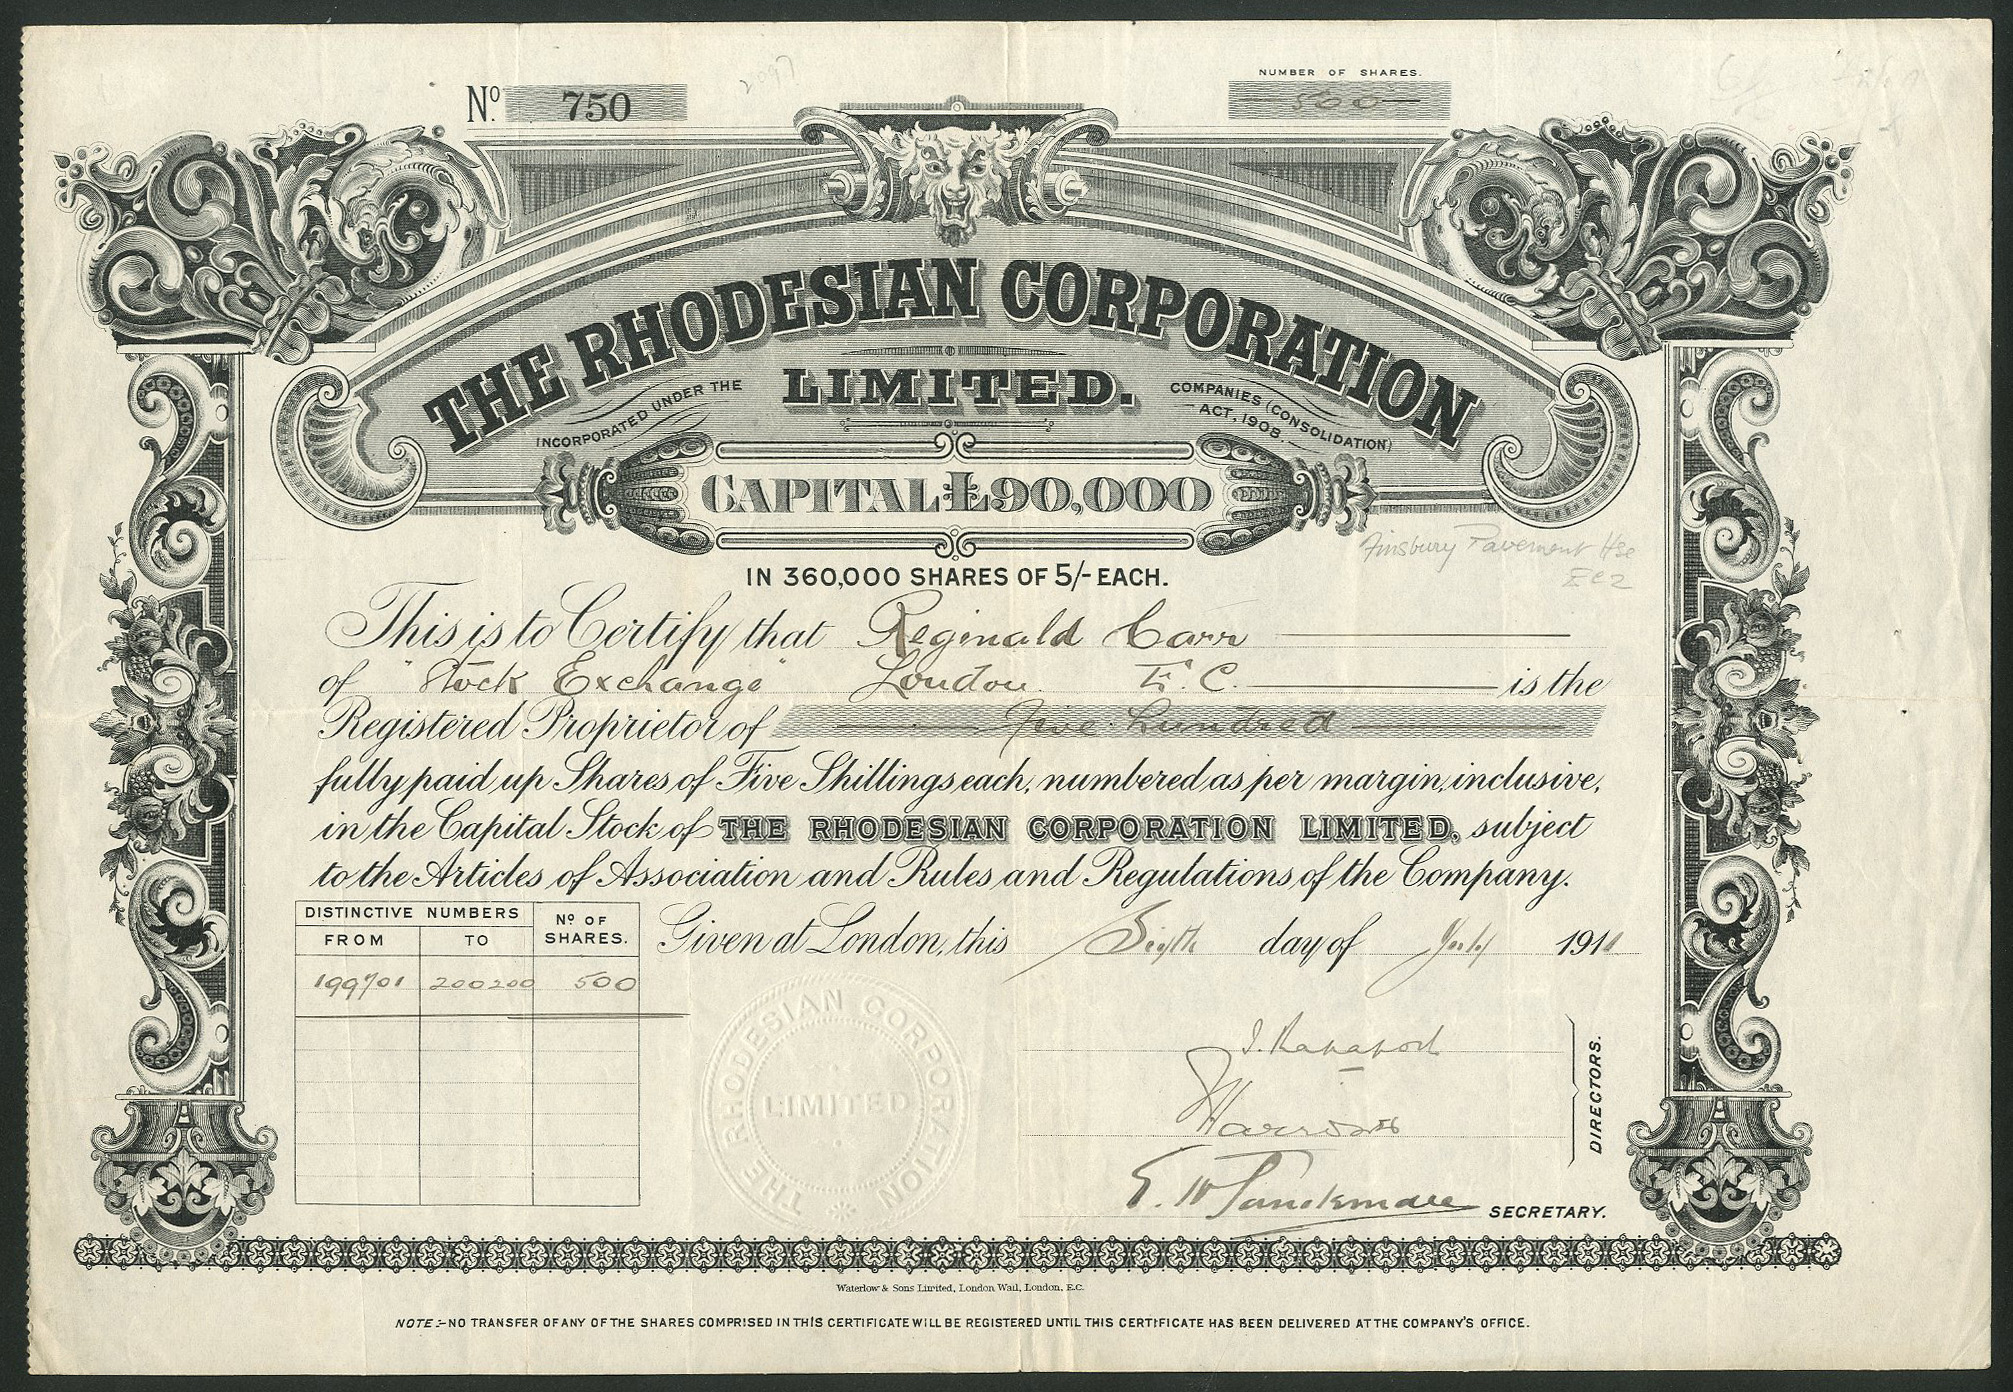 No. 750
2097
NUMBER OF SHARES.
500
THE RHODESIAN CORPORATION
LIMITED.
INCORPORATED UNDER THE
COMPANIES (CONSOLIDATION)
ACT, 1908.
CAPITAL £90,000
IN 360,000 SHARES OF 5/- EACH.
Finsbury Pavement Hse
EC2
This is to Certify that Reginald Carr
of "Stock Exchange" London E.C. is the
Registered Proprietor of Five hundred
fully paid up Shares of Five Shillings each, numbered as per margin, inclusive,
in the Capital Stock of THE RHODESIAN CORPORATION LIMITED, subject
to the Articles of Association and Rules and Regulations of the Company.
Given at London, this Sixth day of July 1911
DISTINCTIVE NUMBERS
No OF SHARES.
FROM TO
199701 200200 500
THE RHODESIAN CORPORATION
LIMITED
DIRECTORS.
SECRETARY.
Waterlow & Sons Limited, London Wall, London, E.C.
NOTE:- NO TRANSFER OF ANY OF THE SHARES COMPRISED IN THIS CERTIFICATE WILL BE REGISTERED UNTIL THIS CERTIFICATE HAS BEEN DELIVERED AT THE COMPANY'S OFFICE.